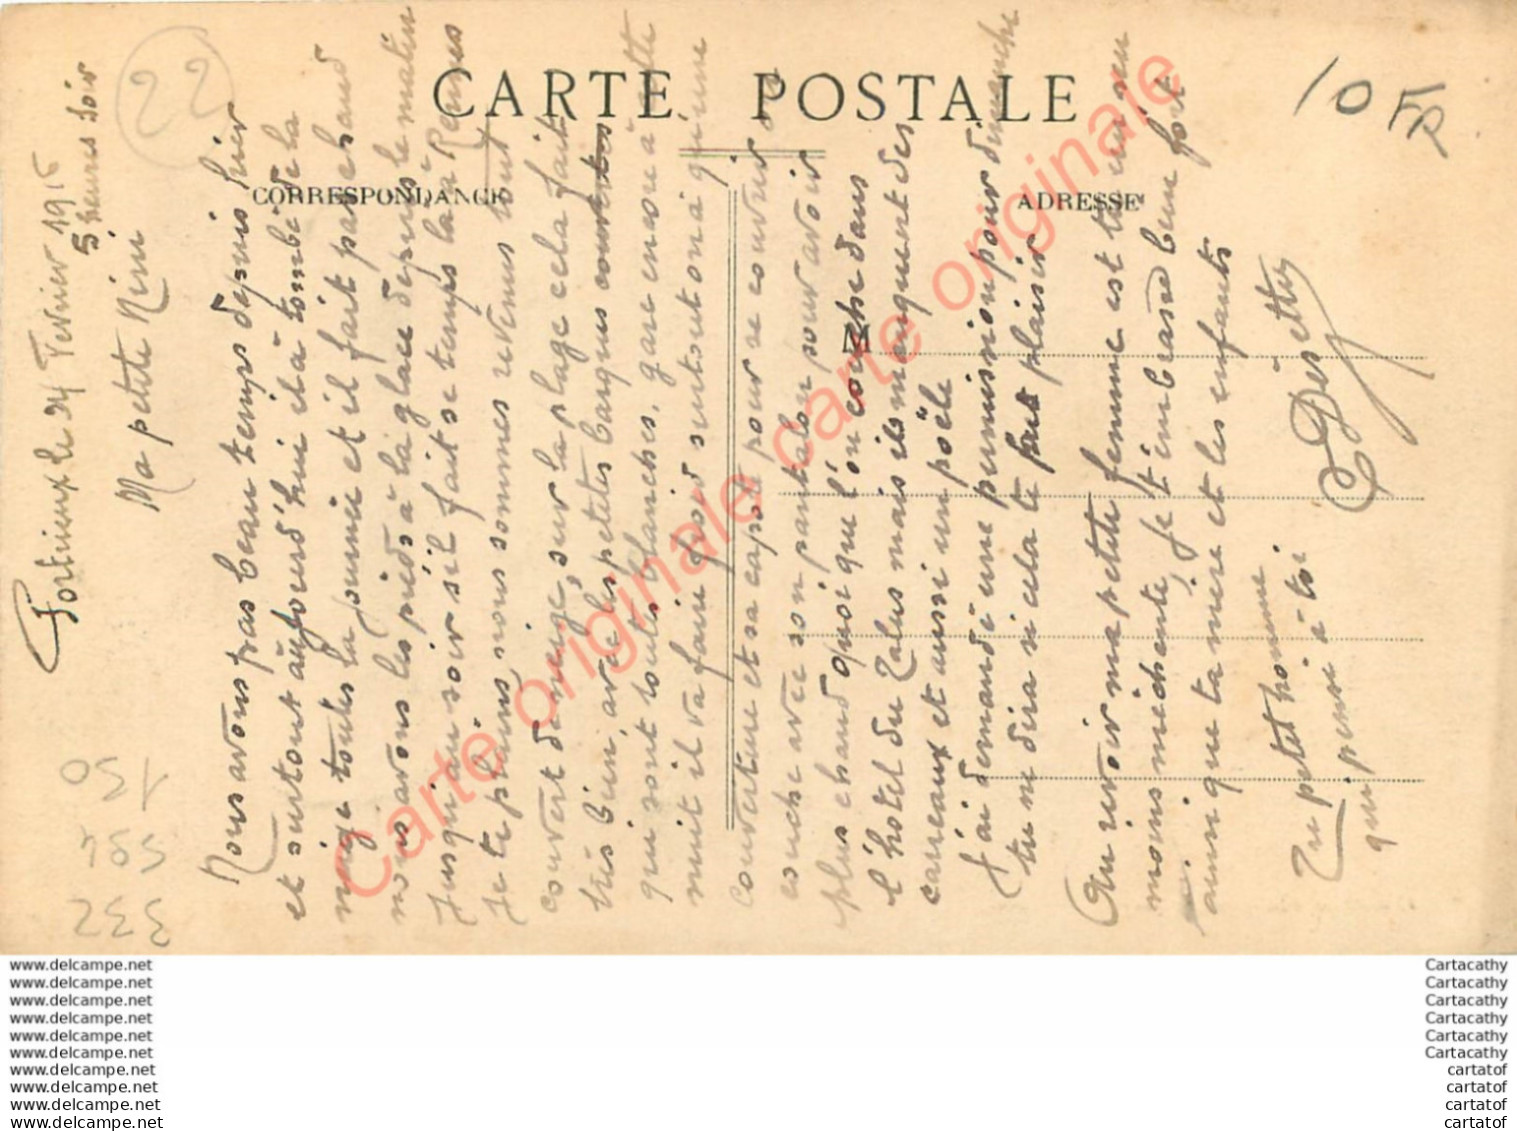 CARTE POSTALE
CORRESPONDANCE
ADRESSE
M
22
10 FR
150
591
332
Portrieux le 24 Fevrier 1916
5 heures soir
Ma petite Nini
Nous avons pas beau temps depuis hier
et surtout aujourd'hui il à tombé de la
neige toute la journée et il fait pas chaud
nous avons les pieds à la glace depuis le matin
Jusqu'au soir s'il fait se temps la à Rennes
Je te plains, nous sommes revenus tout
couvert de neige, sur la plage cela fait
très bien, avec les petites barques couvertes
qui sont toutes blanches, gare encore à cette
nuit il va faire froid surtout on a qu'une
couverture et sa capote pour se couvrir
couche avec son pantalon pour avoir
plus chaud quoi que l'on couche dans
l'hotel du Talus mais ils manquent des
carreaux et aussi un poêle
J'ai demandé une permission pour dimanche
tu me dira si cela te fait plaisir
Au revoir ma petite femme est tu un peu
moins méchante, Je t'embrasse bien fort
ainsi que ta mère et les enfants
Ton petit homme
qui pense à toi
Désettes
Carte originale carte originale carte originale
www.delcampe.net
www.delcampe.net
www.delcampe.net
www.delcampe.net
www.delcampe.net
www.delcampe.net
www.delcampe.net
www.delcampe.net
www.delcampe.net
www.delcampe.net
Cartacathy
Cartacathy
Cartacathy
Cartacathy
Cartacathy
Cartacathy
cartatof
cartatof
cartatof
cartatof